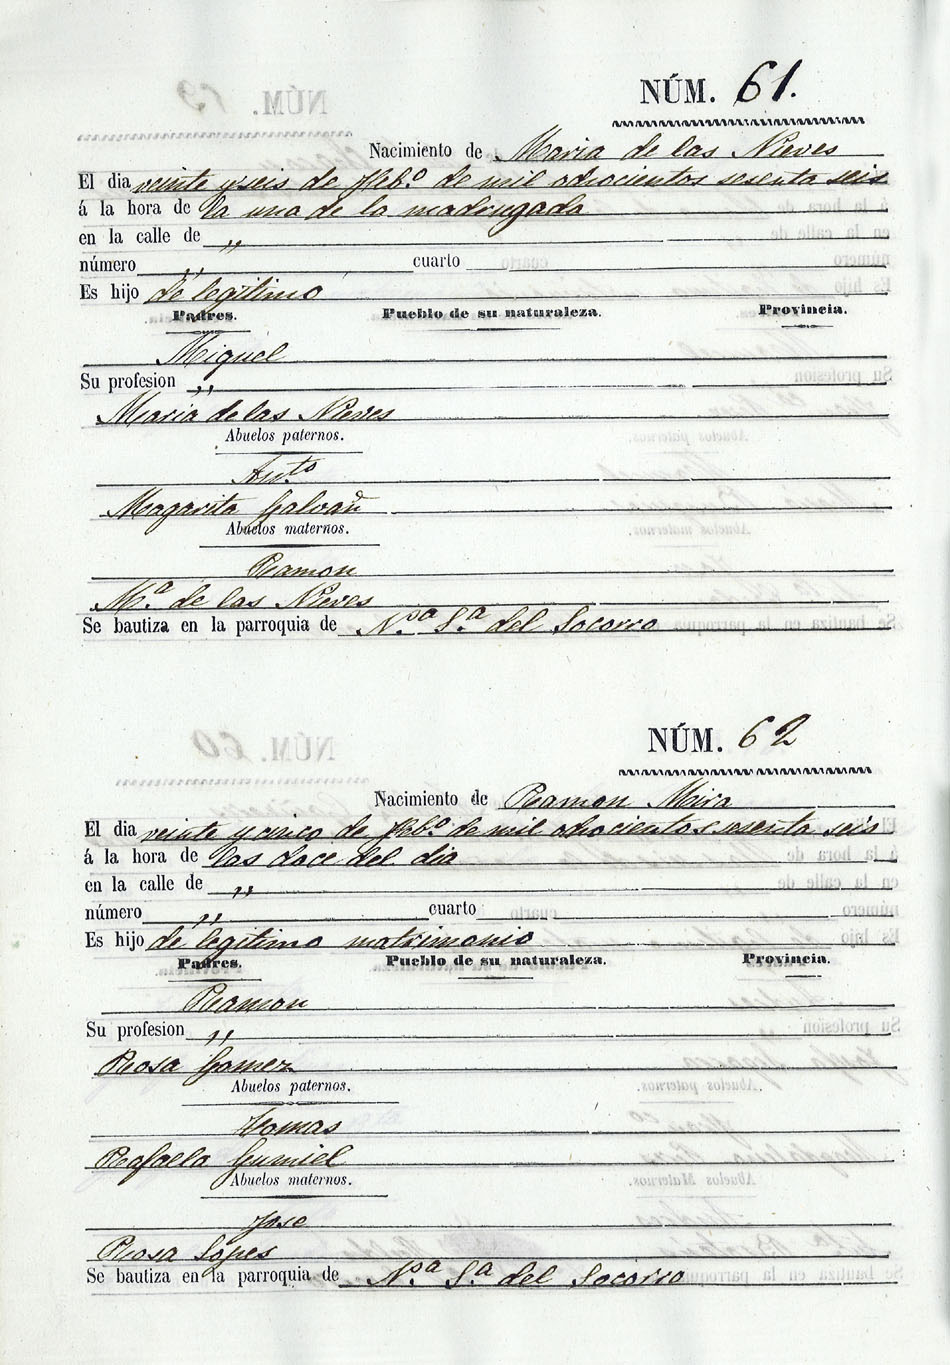 NÚM. 61.
Nacimiento de Maria de las Nieves
El dia veinte y seis de Feb.º de mil ochocientos sesenta seis
á la hora de la una de la madrugada
en la calle de „
número „ cuarto
Es hijo de legitimo
Padres. Pueblo de su naturaleza. Provincia.
Miguel
Su profesion „
Maria de las Nieves
Abuelos paternos.
Ant.º
Magarita Galvañ
Abuelos maternos.
Ramon
M.ª de las Nieves
Se bautiza en la parroquia de N.ʳᵃ S.ª del Socorro
NÚM. 62
Nacimiento de Ramon Mira
El dia veinte y cinco de Feb.º de mil ochocientos sesenta seis
á la hora de las doce del dia
en la calle de „
número „ cuarto
Es hijo de legitimo matrimonio
Padres. Pueblo de su naturaleza. Provincia.
Ramon
Su profesion „
Rosa Gomez
Abuelos paternos.
Tomas
Rafaela Gumiel
Abuelos maternos.
Jose
Rosa Lopes
Se bautiza en la parroquia de N.ʳᵃ S.ª del Socorro